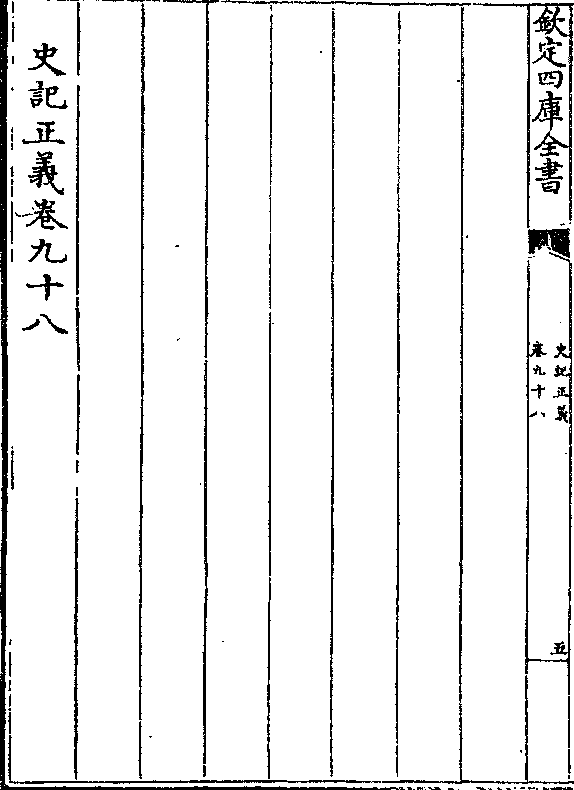 欽定四庫全書
史記正義
卷九十八
五
史記正義卷九十八